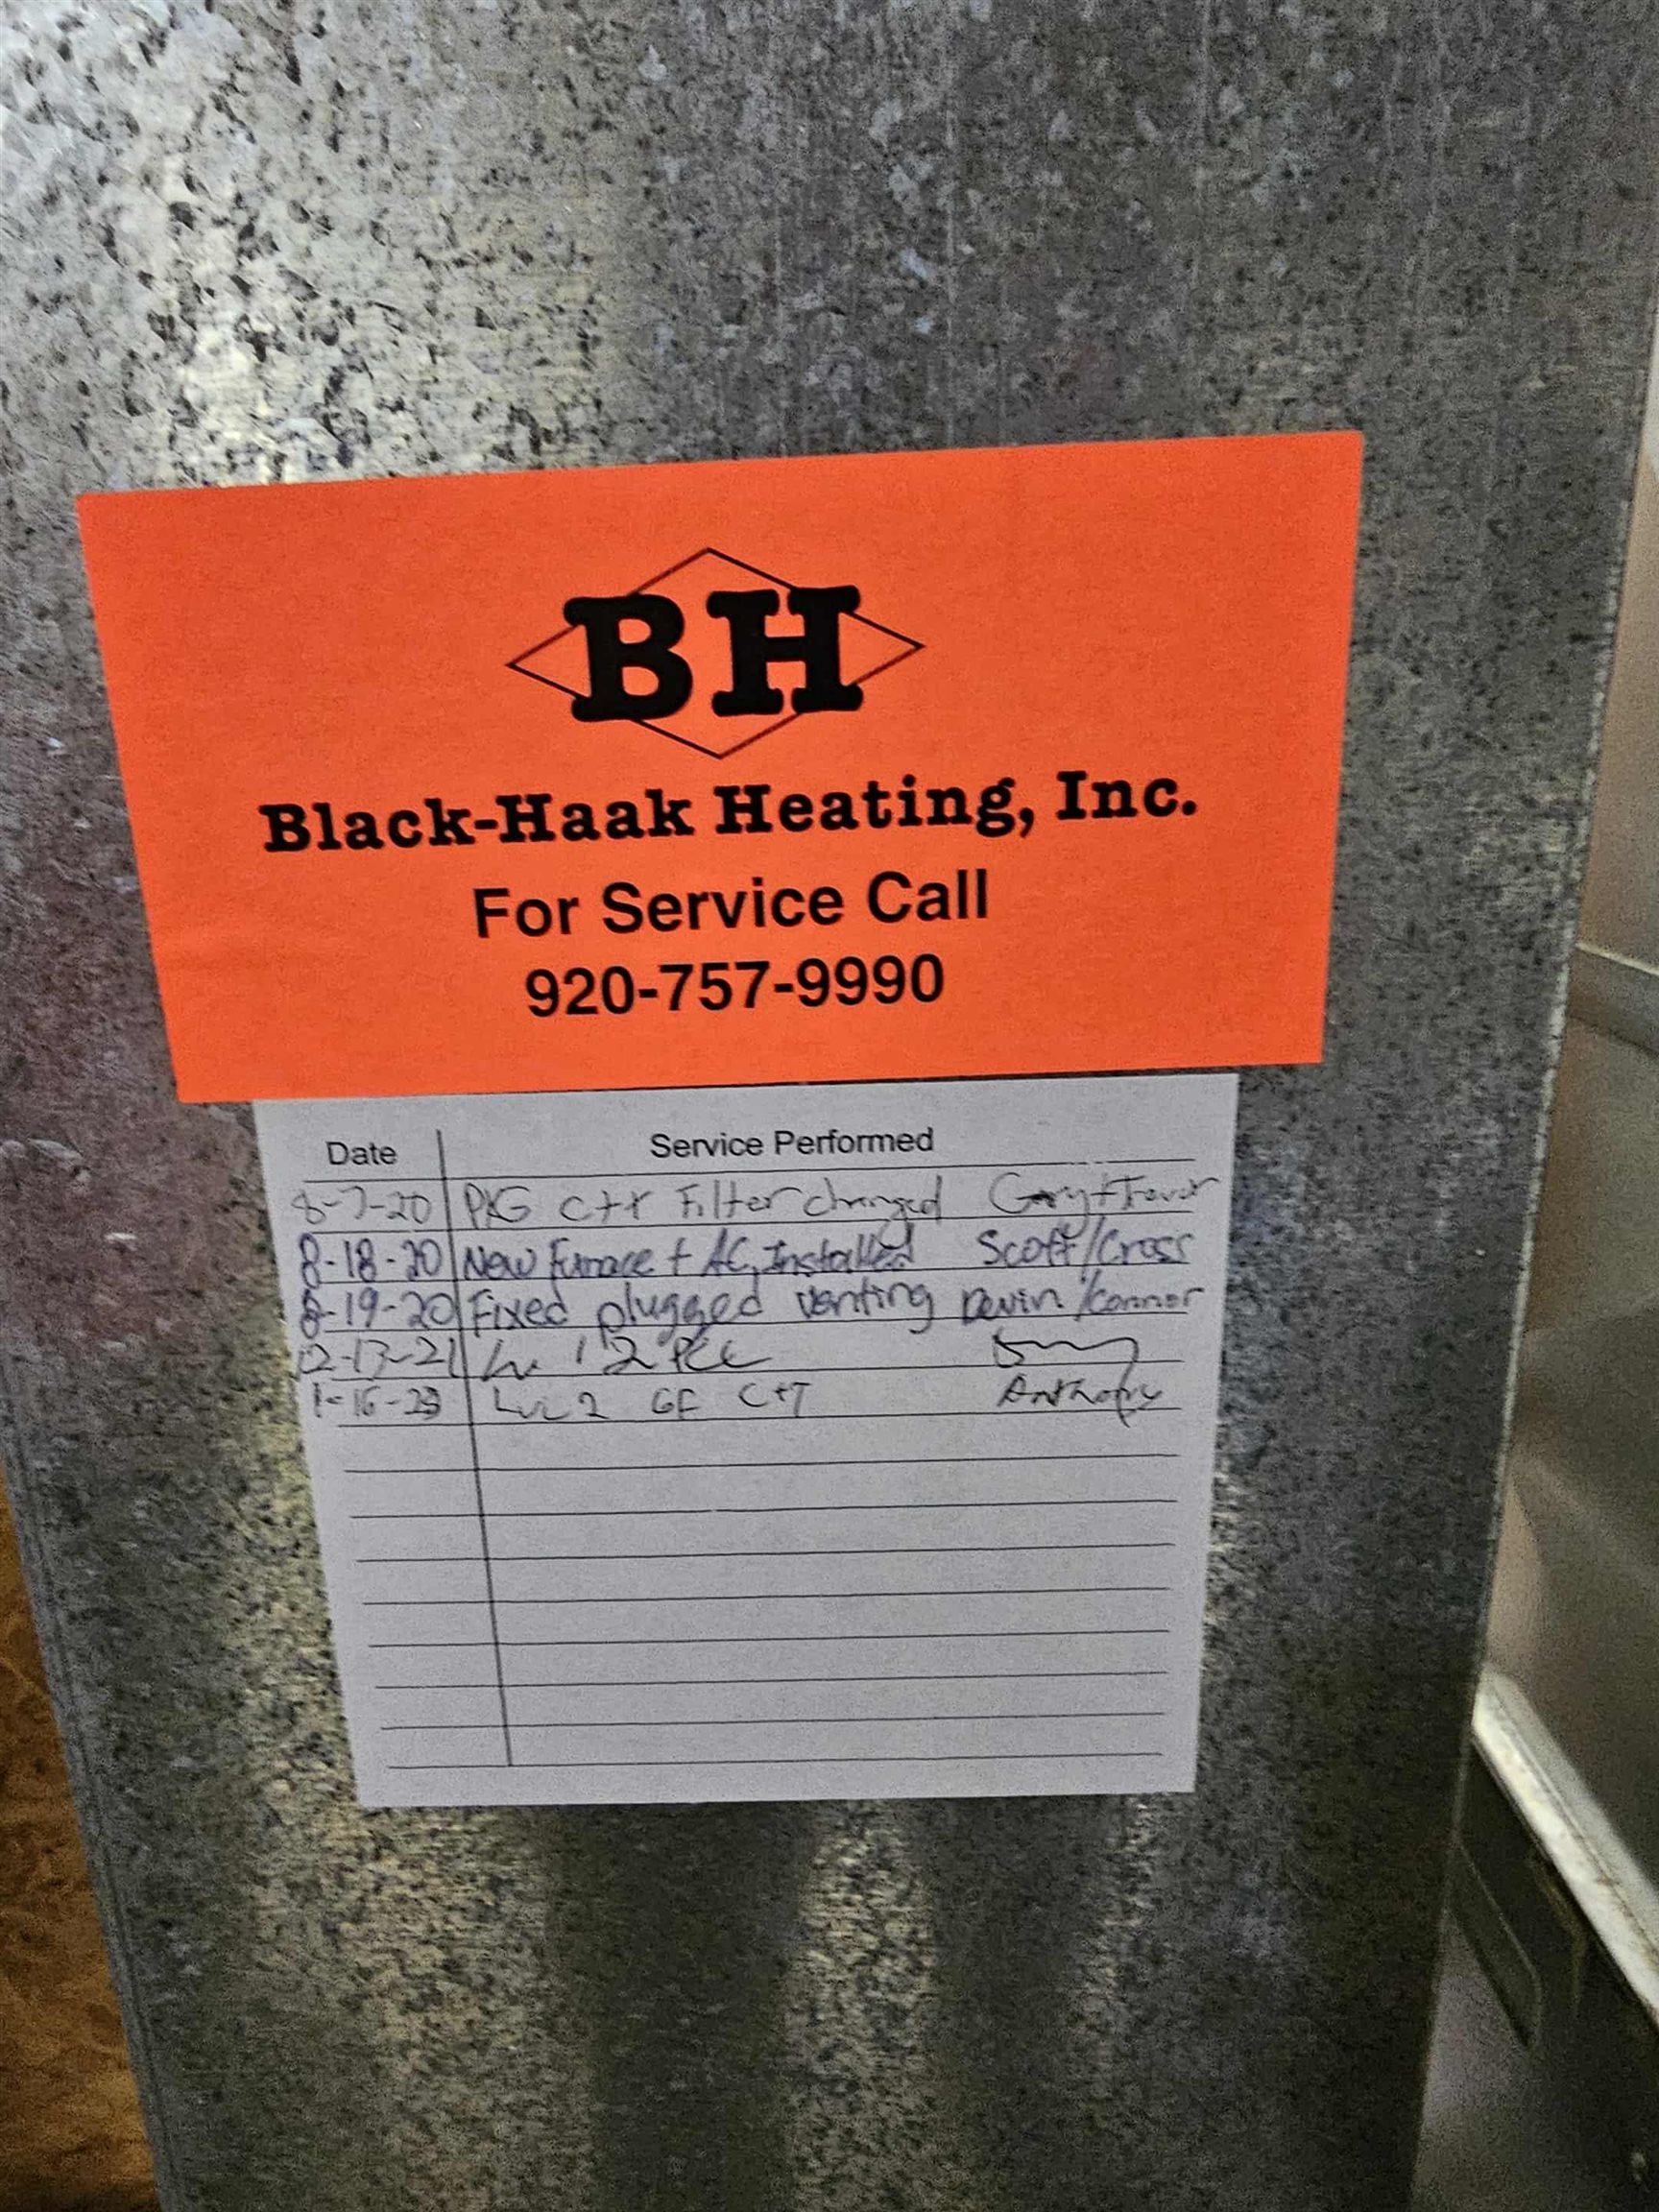 BH
Black-Haak Heating, Inc.
For Service Call
920-757-9990
Date Service Performed
8-7-20 PKG C+T Filter changed Gary+Trevor
8-18-20 New Furnace + AC Installed Scott/Cross
8-19-20 Fixed plugged venting Devin/Connor
12-13-21 2
1-16-23 LVL 2 GF C+T Anthony